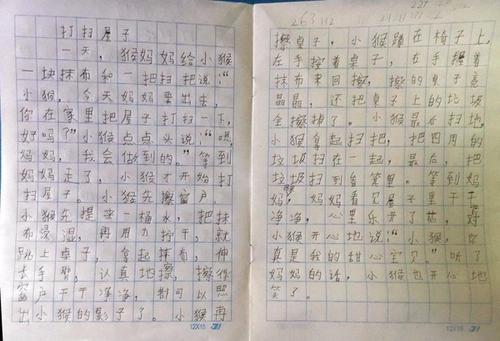 打扫屋子
一天，猴妈妈给小猴
一块抹布和一把扫把说：“
小猴，今天妈妈要出去，
你在家里把屋子打扫一下，
好吗？”小猴点点头说：“嗯，
妈妈，我会做到的。”等到
妈妈走了，小猴才开始打
扫屋子。小猴先擦窗户，
小猴先提来一桶水，把抹
布浸湿，再用力拧干，就
跳上桌子，拿起抹布，伸
长手臂，认真地擦，擦得
窗户干干净净，都可以照
出小猴的影子了。小猴再
擦桌子，小猴蹲在椅子上，
左手撑着桌子，右手握着
抹布来回擦，擦的桌子亮
晶晶，还把桌子上的垃圾
全擦掉了。小猴最后扫地，
小猴拿起扫把，把四周的
垃圾扫在一起，最后，把
垃圾扫到畚箕里。等到妈
妈，妈妈看见屋子里干干
净净，心里乐开了花，对
小猴开心地说：“小猴，你
真是我的甜心宝贝”听了
妈妈的话，小猴也开心地
笑了。
12X15
12X15